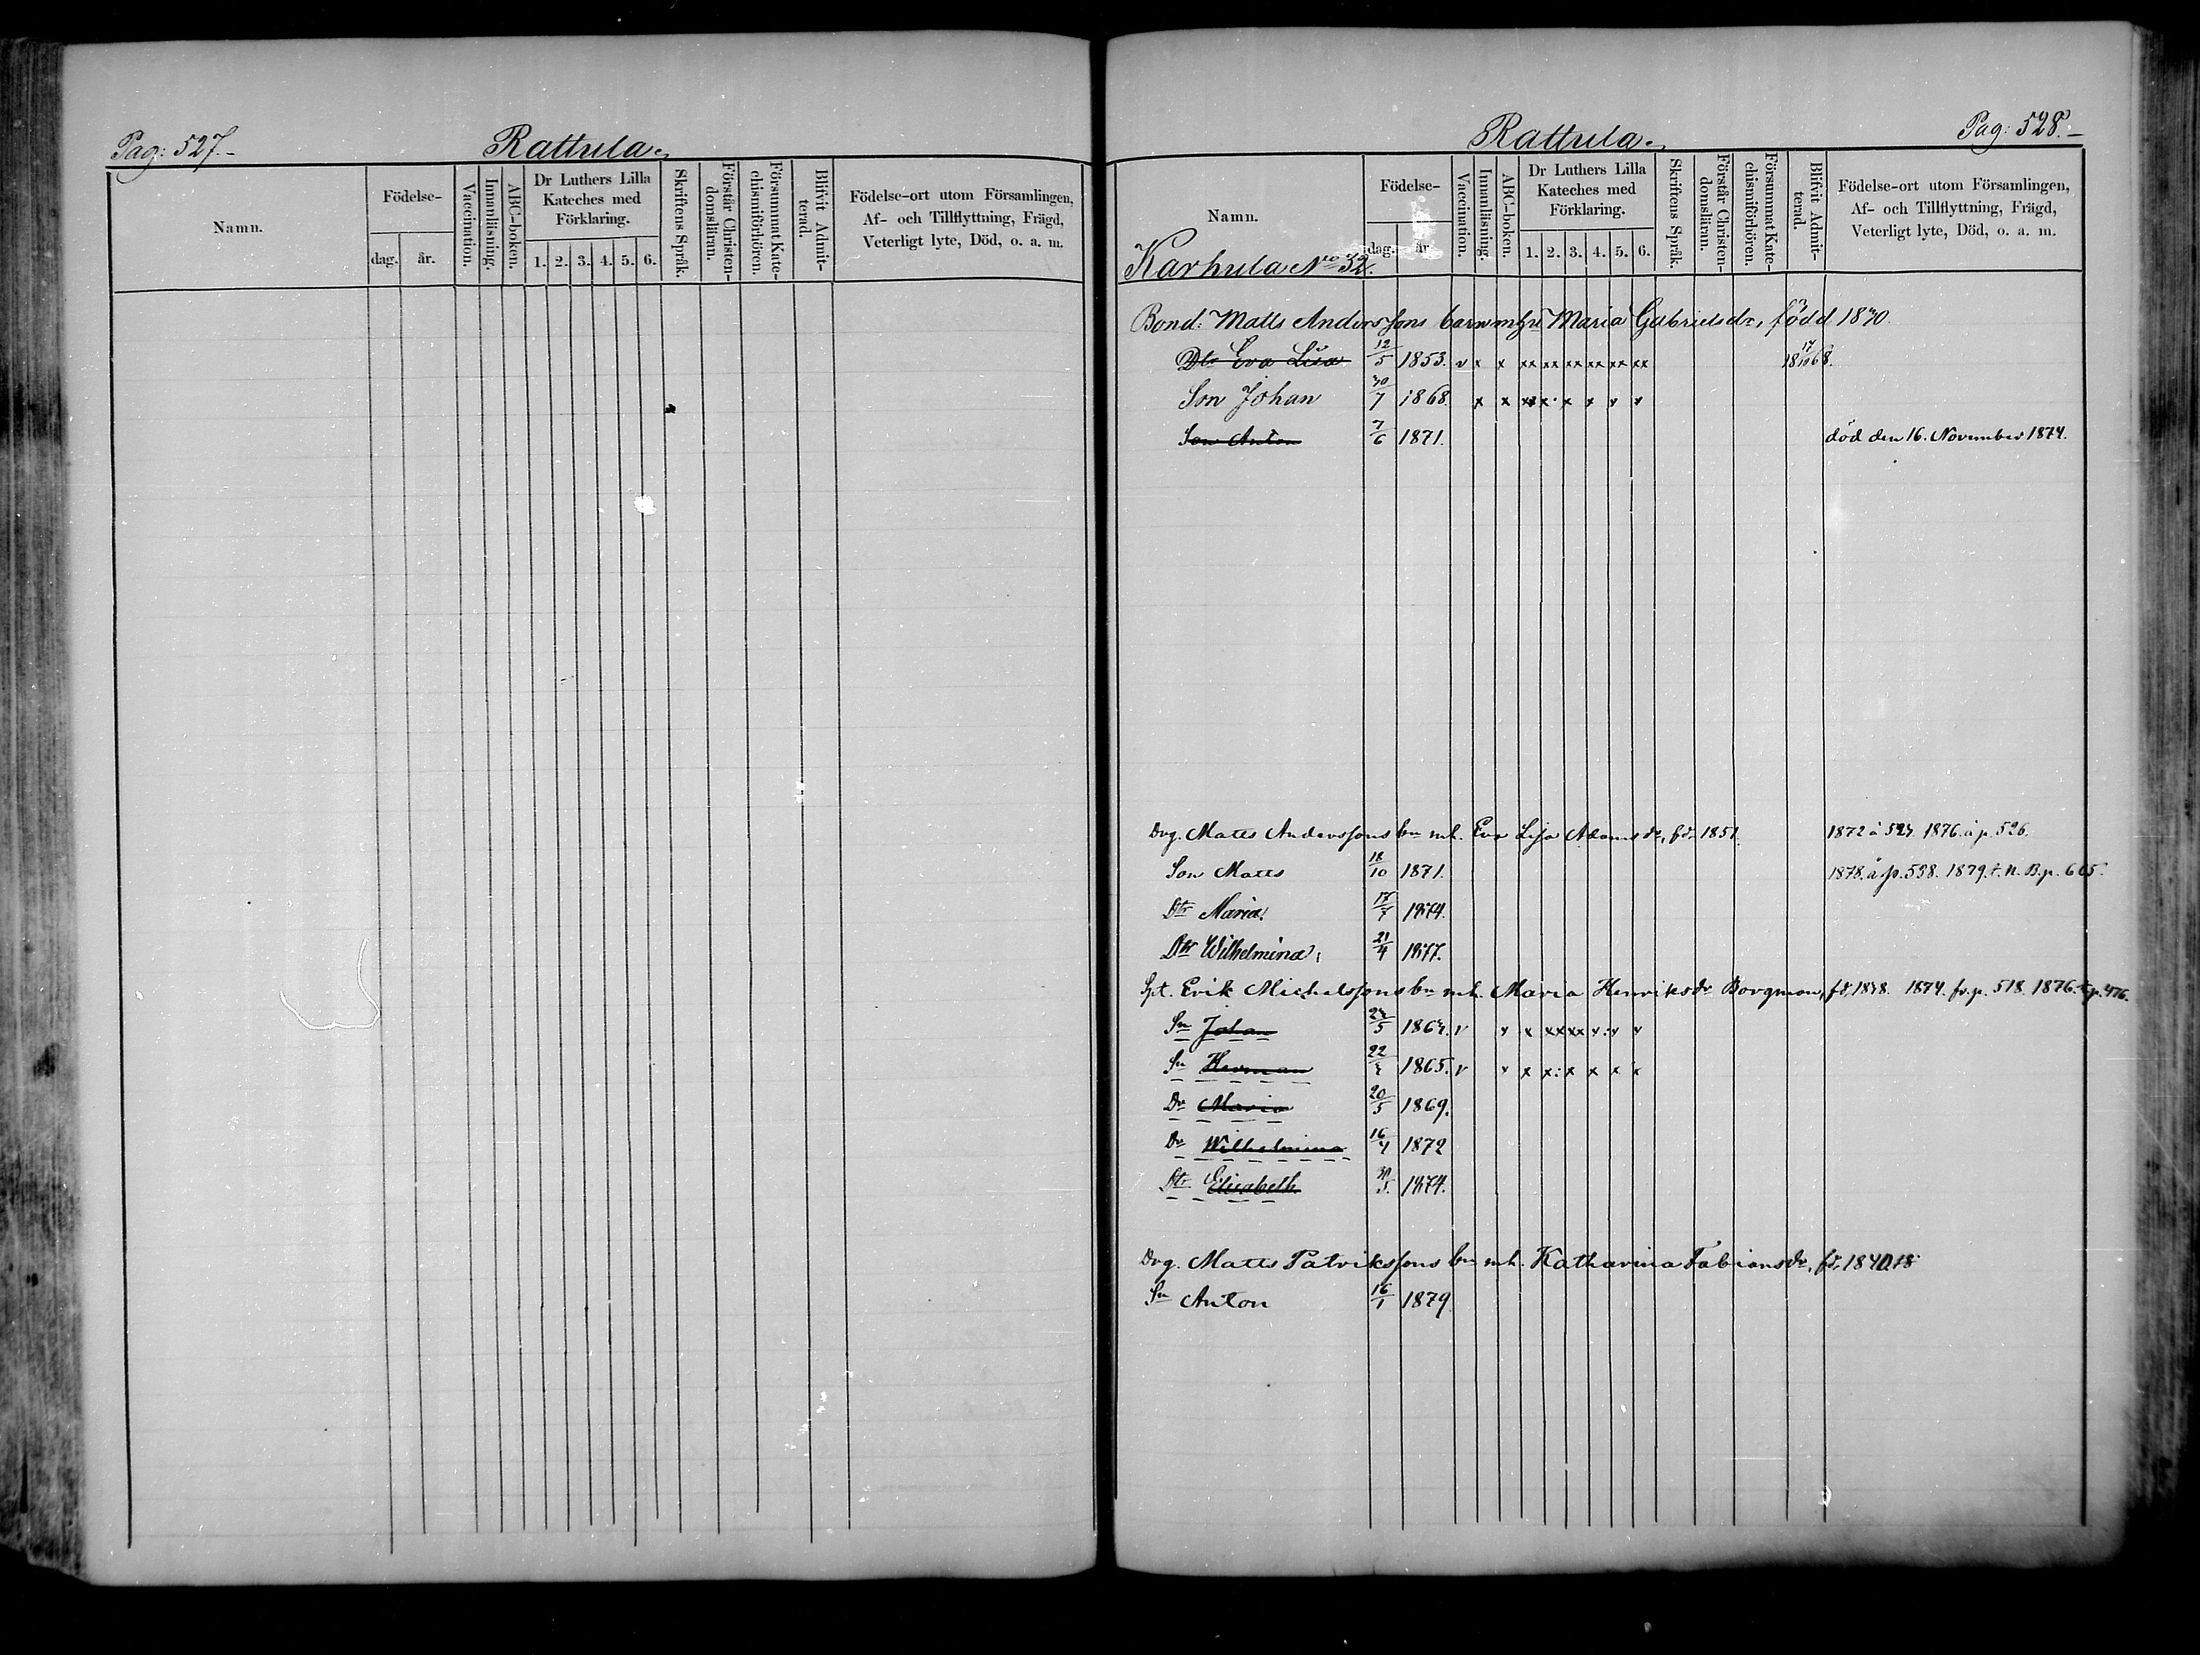 Pag: 527.-
Rattula.
Namn.
Födelse-
dag.
år.
Vaccination.
Innanläsning.
ABC-boken.
Dr Luthers Lilla
Kateches med
Förklaring.
1. 2. 3. 4. 5. 6.
Skriftens Språk.
Förstår Christen-
domsläran.
Försummat Kate-
chismiförhören.
Blifvit Admit-
terad.
Födelse-ort utom Församlingen,
Af- och Tillflyttning, Frägd,
Veterligt lyte, Död, o. a. m.
Rattula.
Pag: 528.-
Namn.
Födelse-
dag.
år
Vaccination.
Innanläsning.
ABC-boken.
Dr Luthers Lilla
Kateches med
Förklaring.
1. 2. 3. 4. 5. 6.
Skriftens Språk.
Förstår Christen-
domsläran.
Försummat Kate-
chismiförhören.
Blifvit Admit-
terad.
Födelse-ort utom Församlingen,
Af- och Tillflyttning, Frägd,
Veterligt lyte, Död, o. a. m.
Karhula No 32.
Bond: Matts Anderssons barn m hu Maria Gabrielsdr, född 1830.
Dtr Eva Lisa 12/5 1853. v x x xx xx xx xx xx xx 18 17/10 68.
Son Johan 30/7 1868. x x xx x x x x x
Son Anton 7/6 1871. död den 16. November 1874.
Drg. Matts Anderssons bn mh. Eva Lisa Adamsdr, fd. 1851. 1872 å 527. 1876. å p. 526.
Son Matts 18/10 1871. 1878. å p. 538. 1879. t. N. B. p. 605.
Dtr Maria. 17/7 1874.
Dtr Wilhelmina. 21/4 1877.
Spt. Erik Michelssons bn mh. Maria Henriksdr Borgman, fd. 1838. 1874. fr. p. 518. 1876. t. p. 476.
Sn Johan 27/5 1867. v v x xx xx v v v
Sn Herman 22/ 1865. v v x x: x x x x
Dr Maria 20/5 1869.
Dr Wilhelmina 16/4 1872
Dtr Elisabeth 5. 1874.
Drg. Matts Patrikssons bn mh. Katharina Fabiansdr, fd. 1840.
Sn Anton 16/1 1879